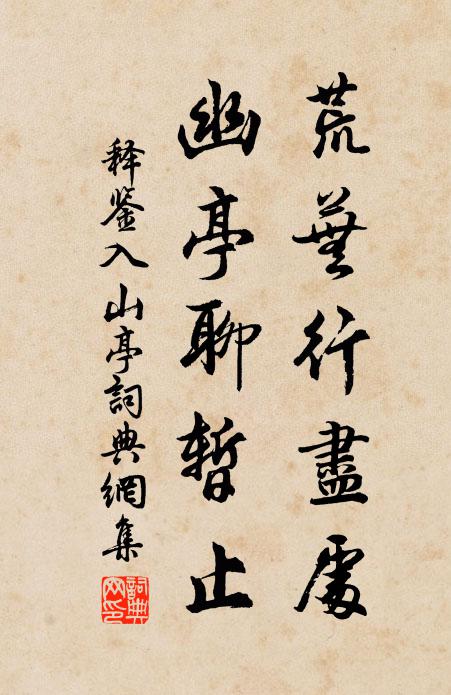 荒蕪行盡處
幽亭聊暫止
释鉴入山亭詞典網集
詞典網印